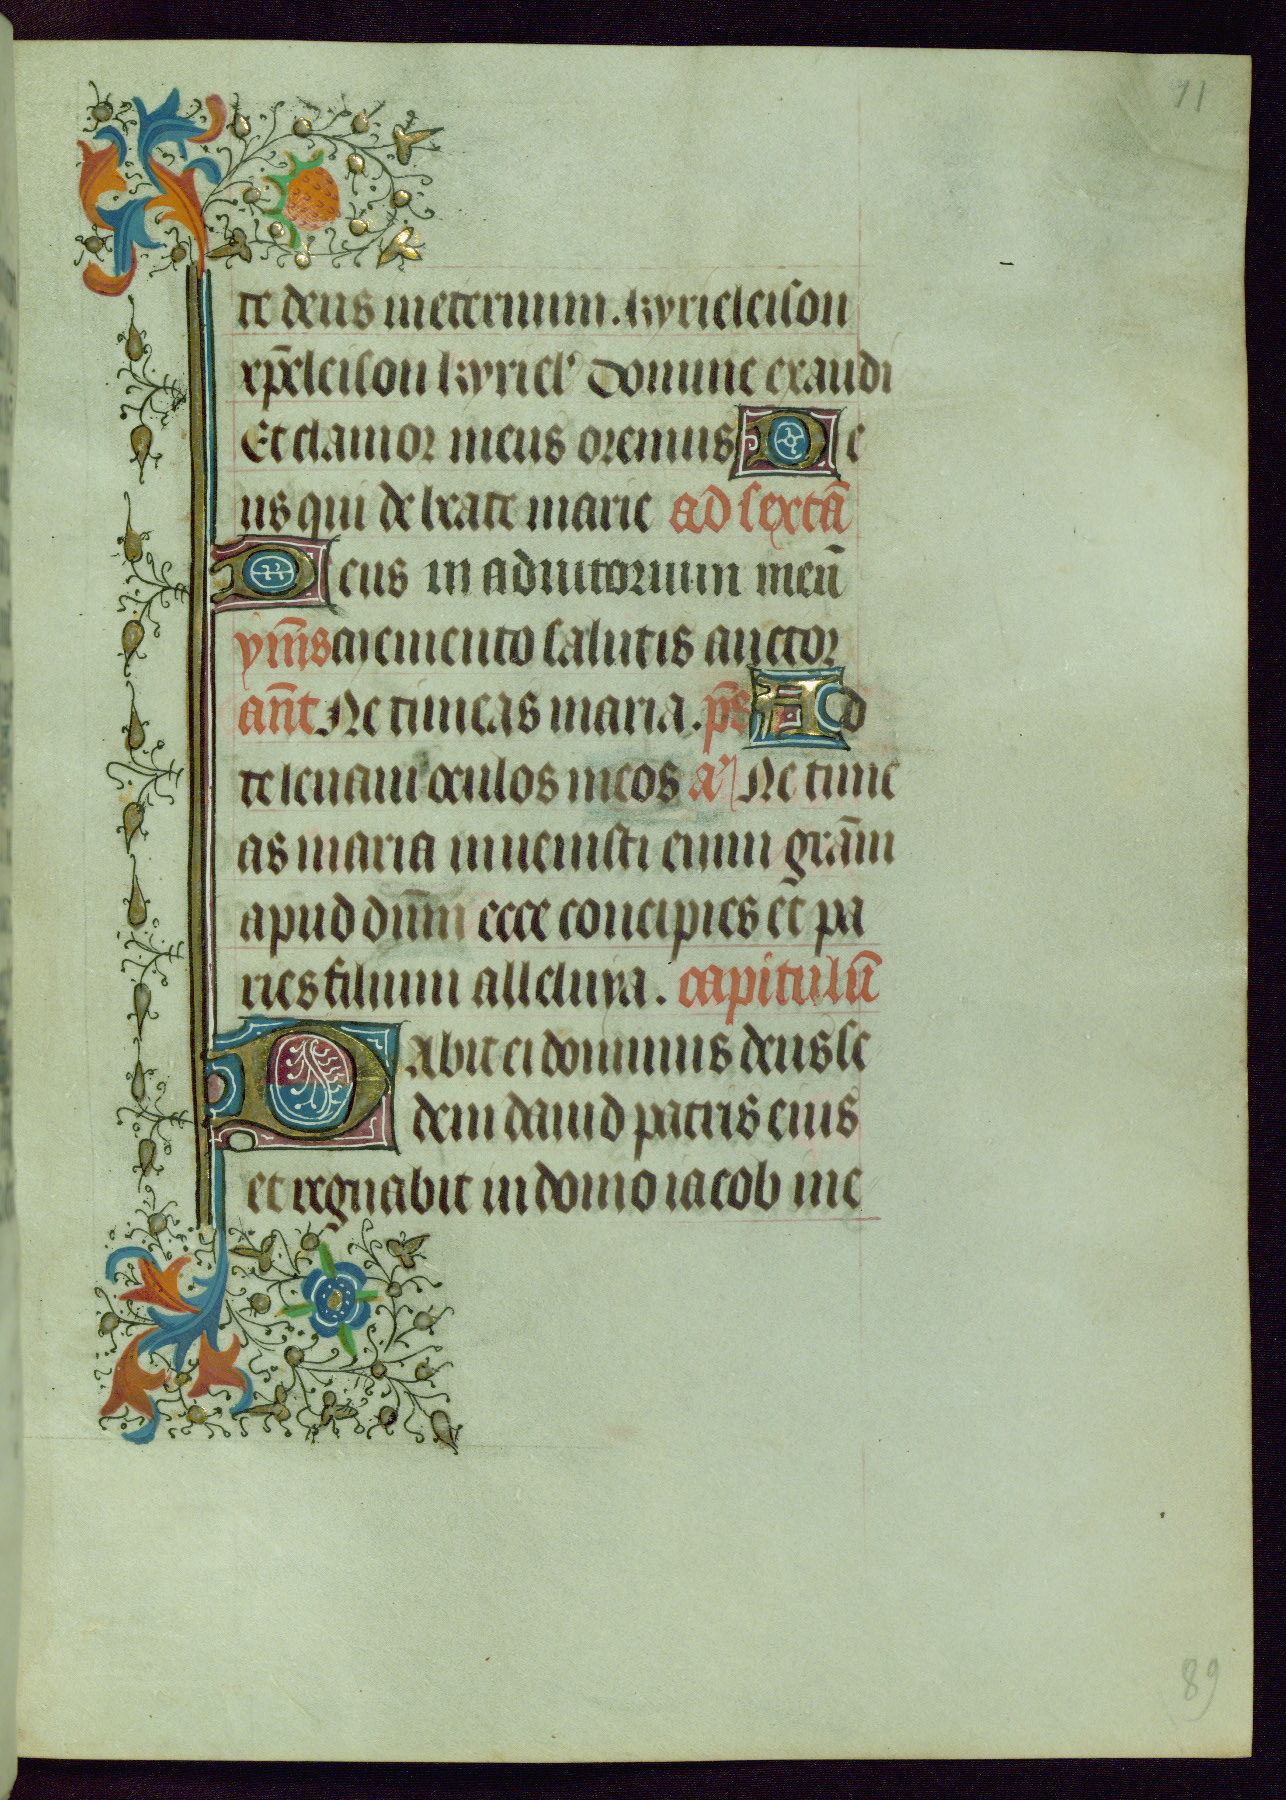 71
te deus ineternum. kyrieleison
xp̄eleison kyriel' Domine exaudi
Et clamor meus oremus De
us qui de beate marie ad sextā
Deus in adiutorium meū
ym̄s memento salutis auctor
an̄t Ne timeas maria. p̄s Ad
te leuaui oculos meos a' Ne time
as maria inuenisti enim grām
apud dn̄m ecce concipies et pa
ries filium alleluya. capitulū
Dabit ei dominus deus se
dem dauid patris eius
et regnabit in domo iacob ine
89